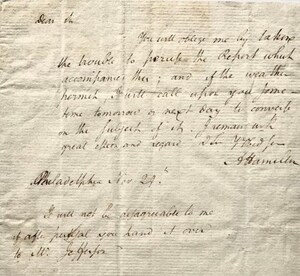 Dear Sir
You will oblige me by taking
the trouble to peruse the Report which
accompanies this; and if the weather
permit, I will call upon you some
time tomorrow or next day to converse
on the subject of it. I remain with
great esteem and regard Dr Sir Yr Obed ser
A Hamilton
Philadelphia Nov 24th
It will not be disagreeable to me
if after perusal you hand it over
to Mr. Jefferson